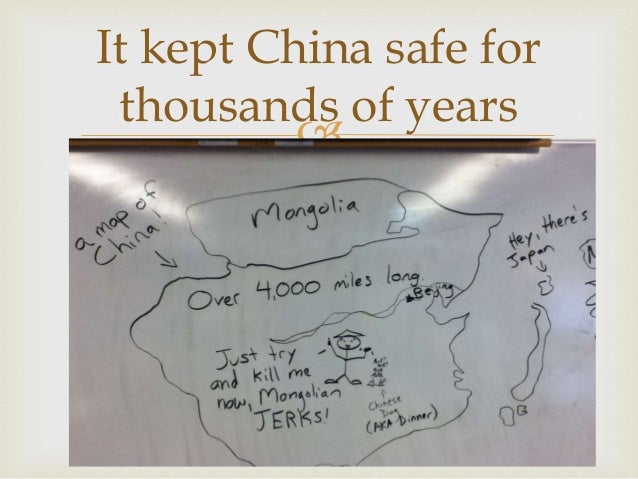 It kept China safe for
thousands of years
a map of
China!
Mongolia
Hey, there's
Japan
Over 4,000 miles long.
Beijing
Just try
and kill me
now, Mongolian
JERKS!
Chinese
Dog
(AKA Dinner)